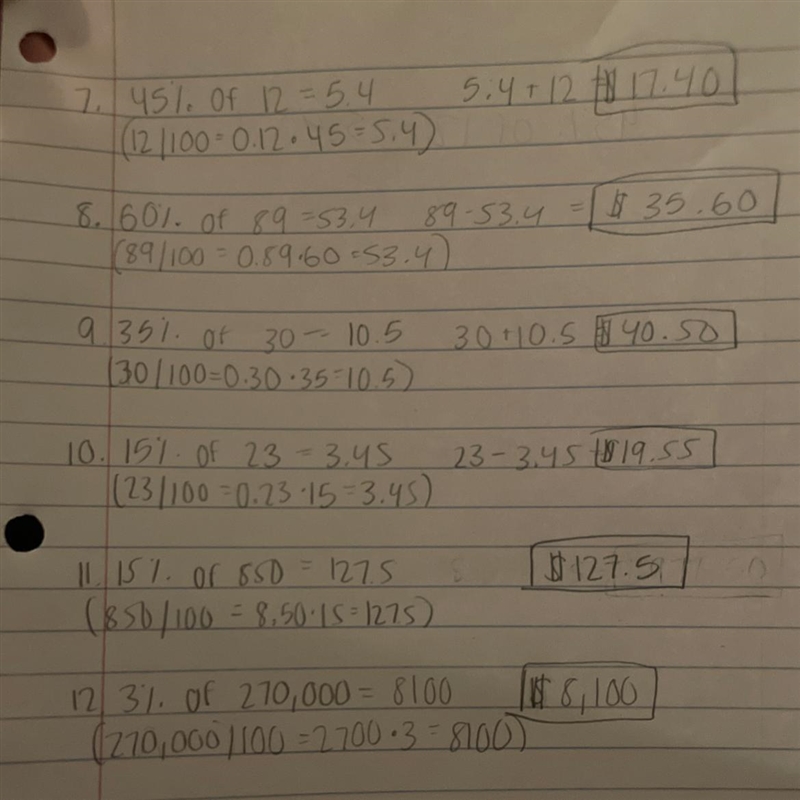 7. 45% of 12 = 5.4 5.4 + 12 = $17.40
(12/100 = 0.12 · 45 = 5.4)
8. 60% of 89 = 53.4 89 - 53.4 = $35.60
(89/100 = 0.89 · 60 = 53.4)
9 35% of 30 = 10.5 30 + 10.5 = $40.50
(30/100 = 0.30 · 35 = 10.5)
10. 15% of 23 = 3.45 23 - 3.45 = $19.55
(23/100 = 0.23 · 15 = 3.45)
11. 15% of 850 = 127.5 $127.5
(850/100 = 8.50 · 15 = 127.5)
12 3% of 270,000 = 8100 $8,100
(270,000/100 = 2700 · 3 = 8100)